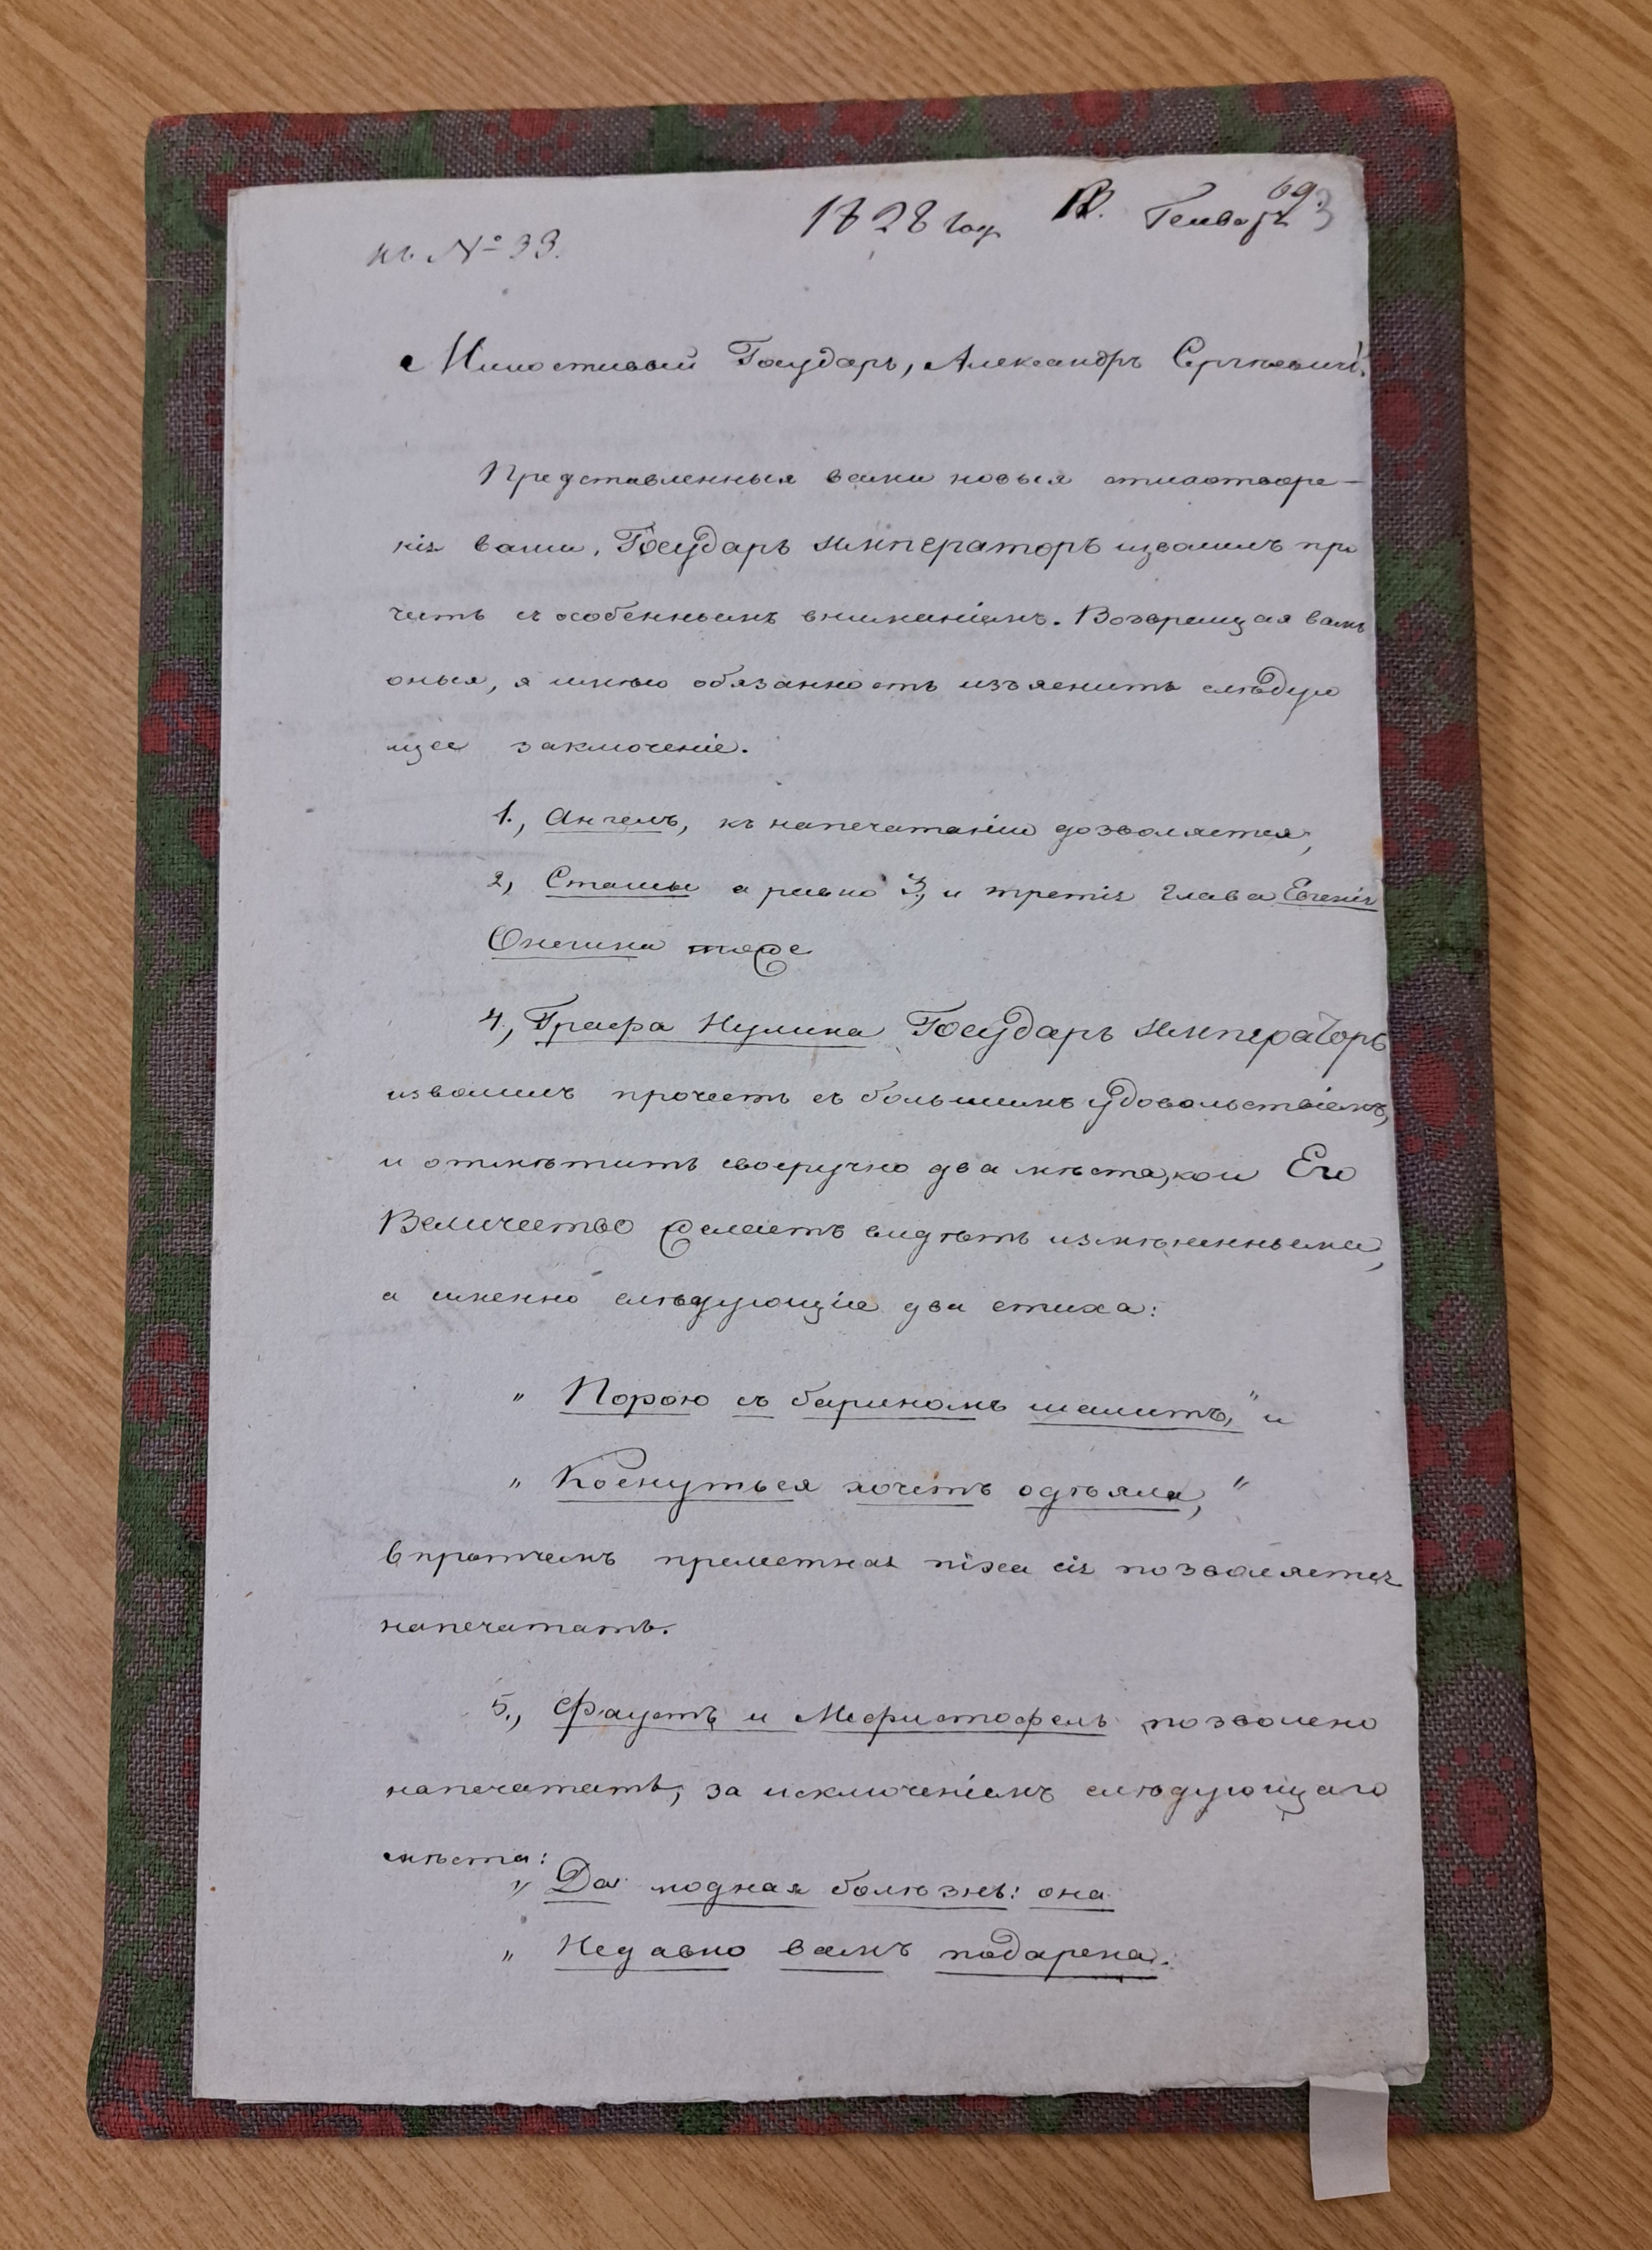 къ № 33.
1828 год. Генваря
69.
Милостивый Государь, Александръ Сергѣевичъ!
Представленныя вами новыя стихотворе-
нія ваши, Государь Императоръ изволилъ про
честь съ особеннымъ вниманіемъ. Возвращая вамъ
оныя, я имѣю обязанность изъяснить слѣдую
щее заключеніе.
1., Ангелъ, къ напечатанію дозволяется;
2, Стансы а равно 3., и третія глава Евгенія
Онегина тоже
4., Графа Нулина Государь Императоръ
изволилъ прочесть съ большимъ удовольствіемъ,
и отмѣтить своеручно два мѣста, кои Его
Величество желаетъ видѣть измѣненными,
а именно слѣдующіе два стиха:
„ Порою съ бариномъ шалитъ,“ и
„ Коснуться хочетъ одѣяла,“
впротчемъ прелестная піэса сія позволяется
напечатать.
5., Фаустъ и Мефистофель позволено
напечатать, за исключеніемъ слѣдующаго
мѣста:
„ Да модная болѣзнь: она
„ Недавно вамъ подарена.